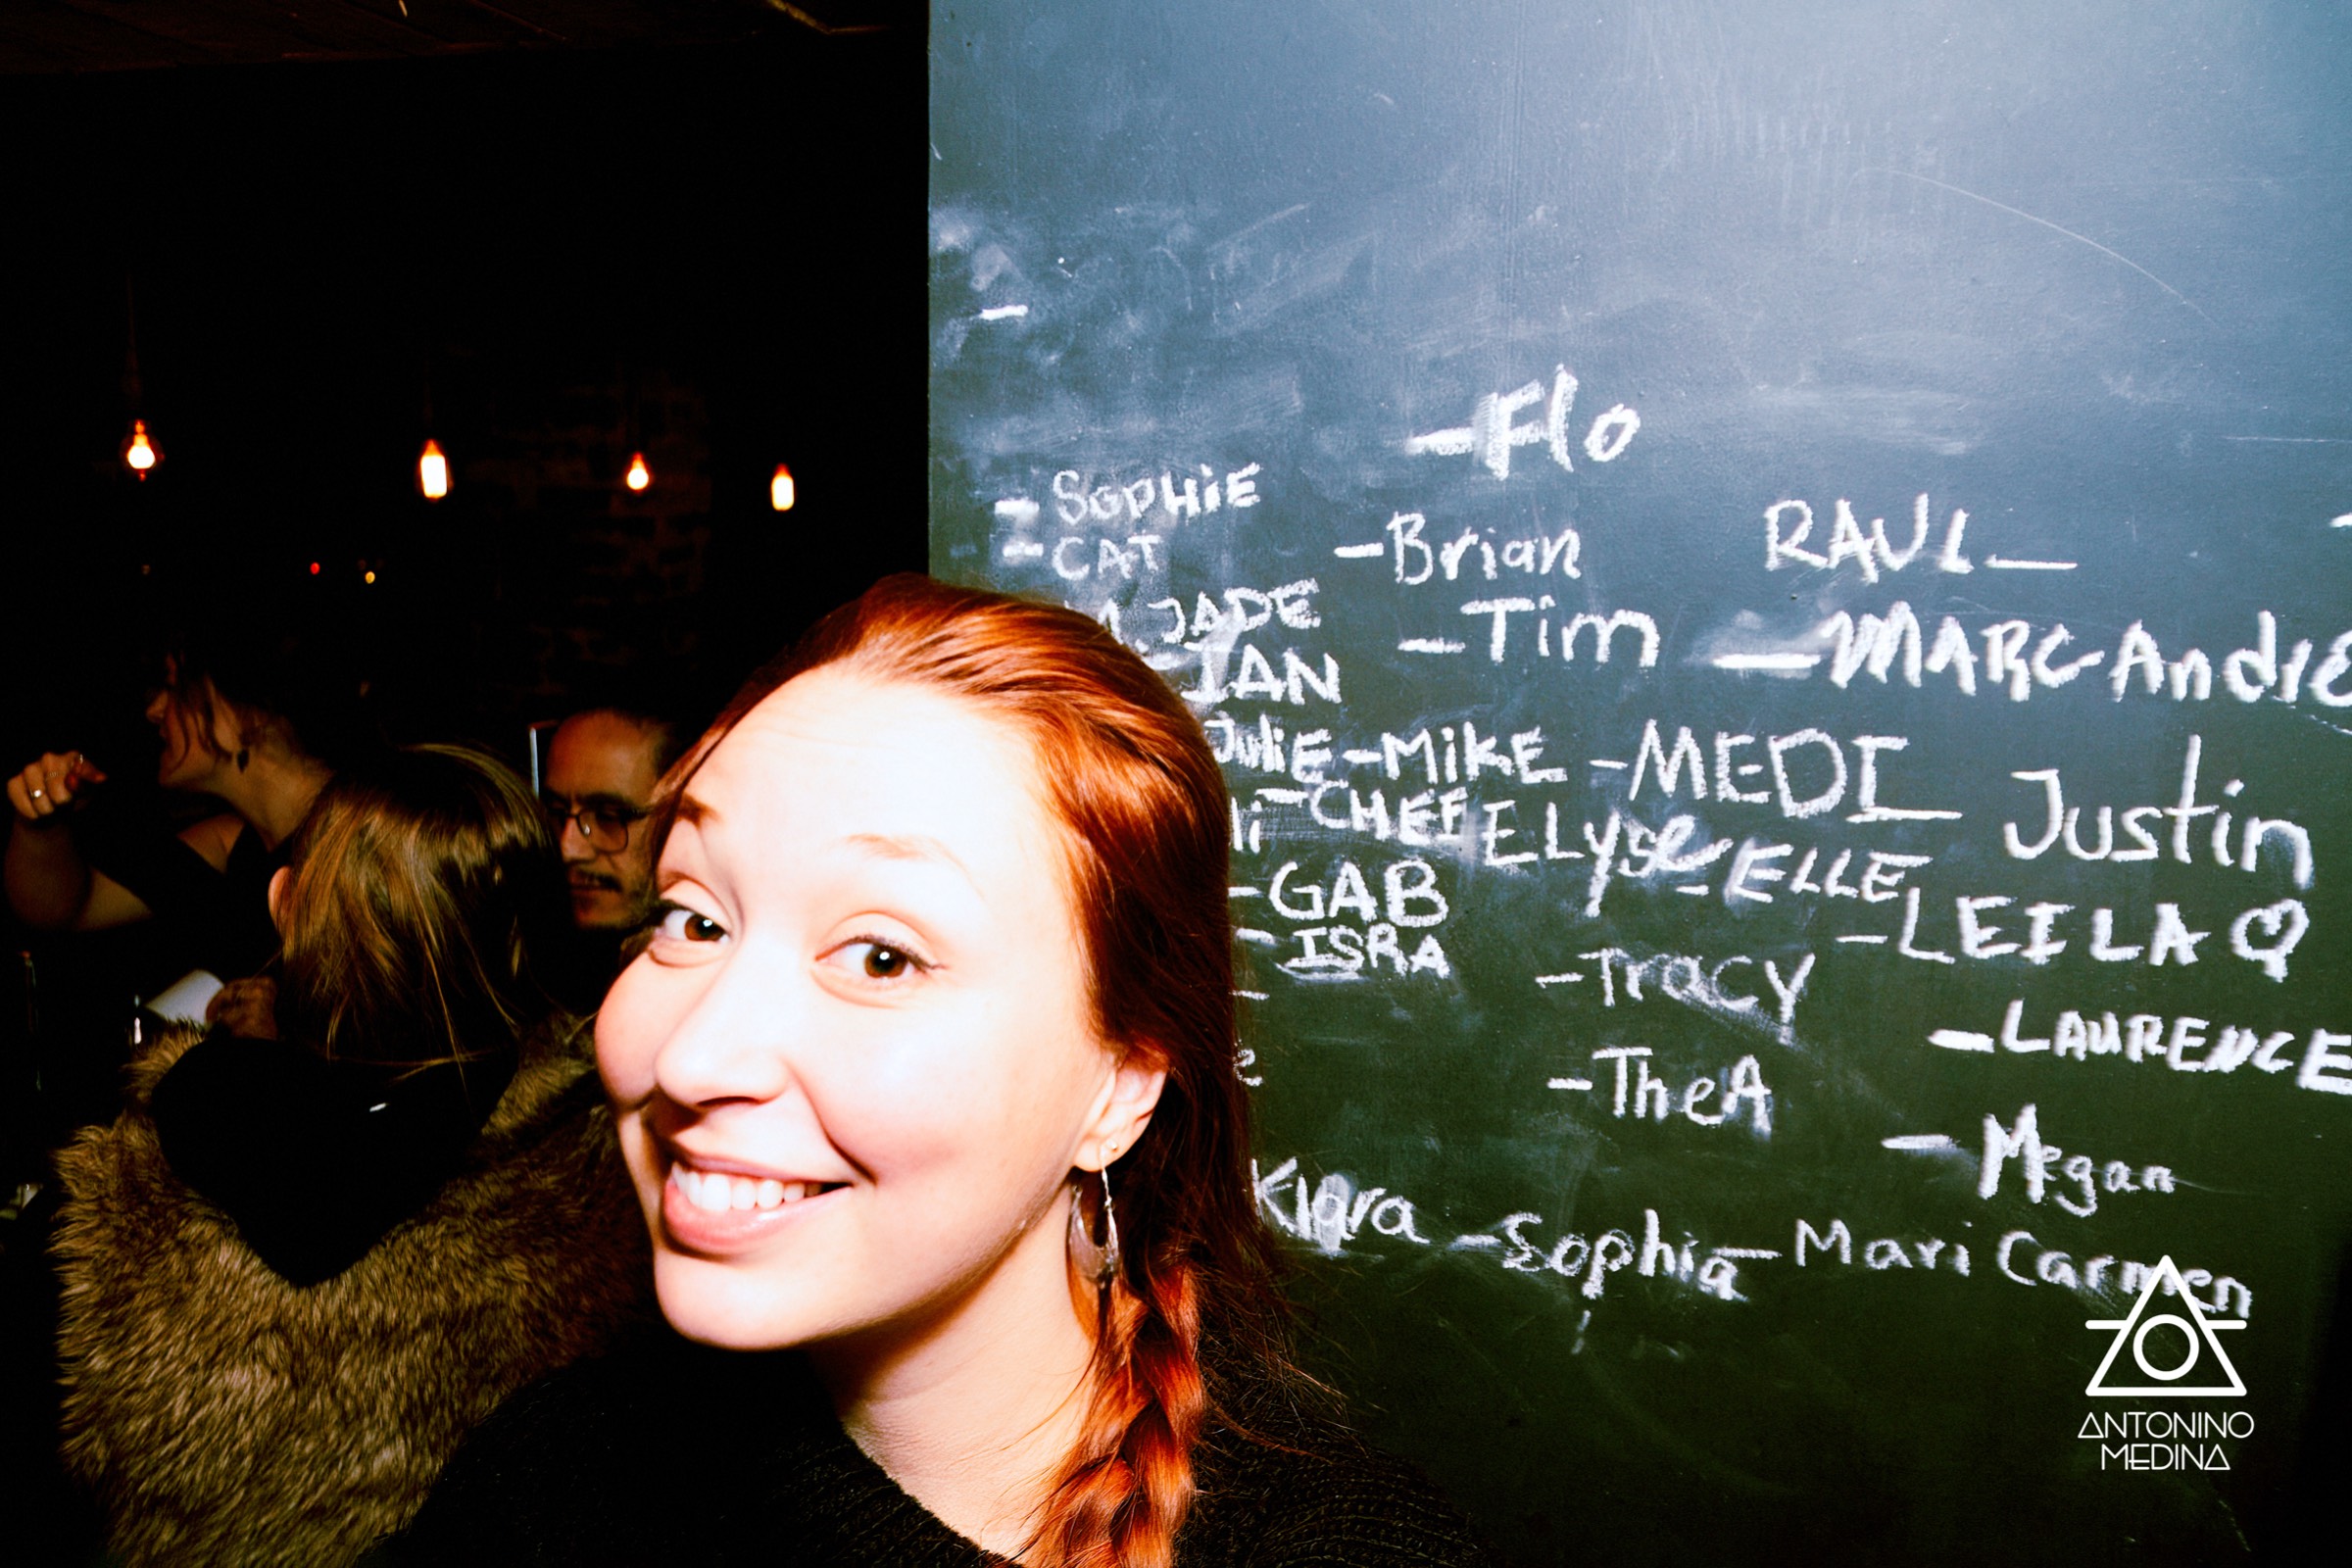 -Flo
- SOPHIE
- CAT
-Brian
RAUL_
JADE
-Tim
-MARC-AndrE
IAN
JuliE -MiKE -MEDI
Justin
-CHEF ELySe -ELLE
-GAB
-LEILA ♡
-ISRA
-TracY
-LAURENCE
-TheA
-Megan
Kiara -Sophia -Mari Carmen
ANTONINO
MEDINA